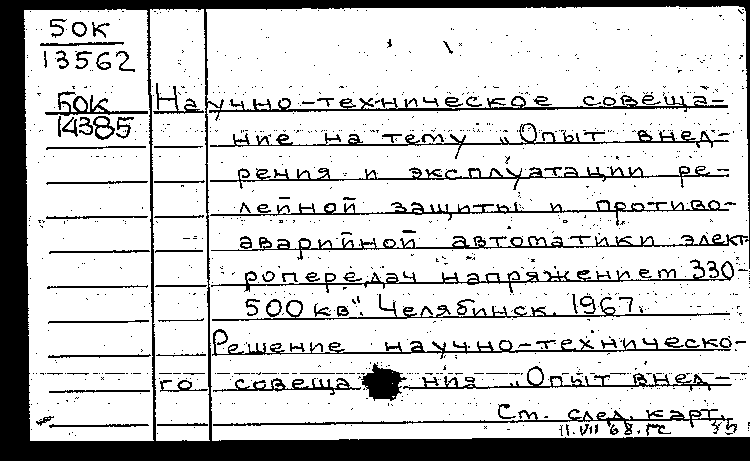 50К
13562
50К
14385
Научно-техническое совеща-
ние на тему „Опыт внед-
рения и эксплуатации ре-
лейной защиты и противо-
аварийной автоматики элект-
ропередач напряжением 330-
500 кв". Челябинск. 1967.
Решение научно-техническо-
го совеща ния „Опыт внед-
См. след. карт.
11.VII 68.